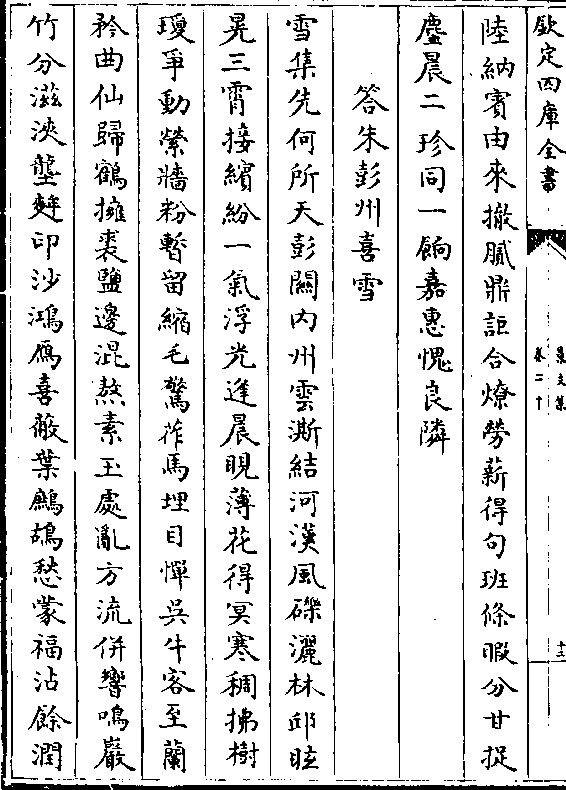 欽定四庫全書
景文集
卷二十
十二
陸納賓由來撤膩鼎詎合燎勞薪得句班條暇分甘捉
麈晨二珍同一餉嘉惠愧良隣
答朱彭州喜雪
雪集先何所天彭闗内州雲澌結河漢風礫灑林邱眩
晃三霄接繽紛一氣浮光逢晨睍薄花得冥寒稠拂樹
瓊爭動縈牆粉暫留縮毛驚莋馬埋目憚吳牛客至蘭
矜曲仙歸鶴擁裘鹽邊混熬素玉處亂方流併響鳴巖
竹分滋浹壟麰印沙鴻雁喜蔽葉鷓鴣愁蒙福沾餘潤